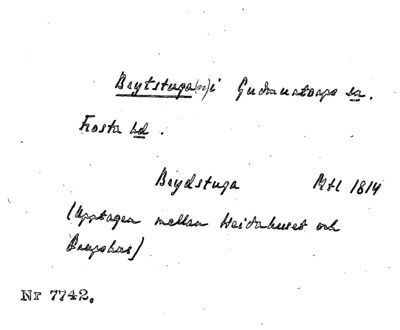 Brytstuga(n) i Gudmuntorps sn.
Frosta hd.
Brydstuga Mtl 1814
(Upptagen mellan Heidahuset och
Nr 7742.